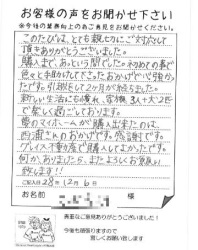 お客様の声をお聞かせ下さい
※今後の業務向上の為ご意見をお聞かせください。
このたびは、とても親切にご対応して
頂きありがとうございました。
購入まで、あっという間でした。初めての事で
色々と手助けして下さったおかげで心強かっ
たです。引越をして2ヶ月が経ちました。
新しい生活にも慣れ、家族3人+犬2匹
で楽しく過ごしております。
夢のマイホームが購入出来たのは、
西浦さんのおかげです。感謝です。
グレイス不動産で購入してよかったです。
何か、ありましたら、またよろしくお願い
致します!!
ご記入日28年12月6日
お名前 様
貴重なご意見ありがとうございました!
今後も頑張りますので
宜しくお願い致します